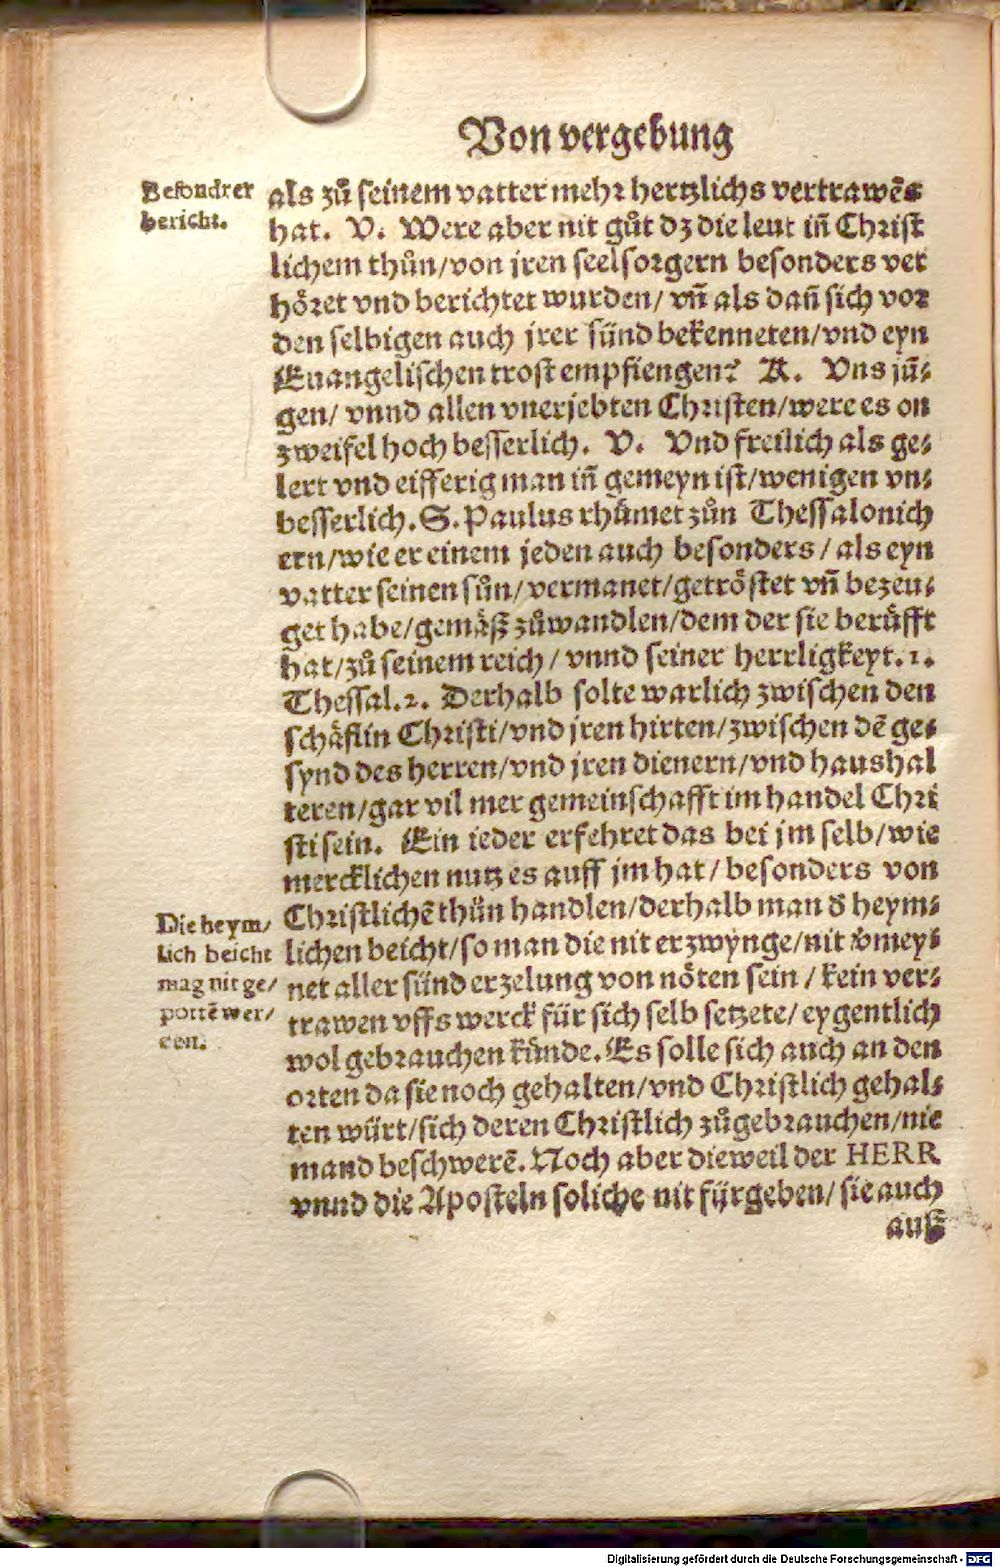 Von vergebung
Besondrer
bericht.
als zů seinem vatter mehr hertzlichs vertrawẽs
hat. V. Were aber nit gůt dz die leut iñ Christ
lichem thůn/von jren seelsorgern besonders ver
höret vnd berichtet wurden/ vñ als dañ sich vor
den selbigen auch jrer sünd bekenneten/vnd eyn
Euangelischen trost empfiengen? A. Vns jũ⸗
gen/ vnnd allen vnerjebten Christen/were es on
zweifel hoch besserlich. V. Vnd freilich als ge⸗
lert vnd eifferig man iñ gemeyn ist/wenigen vn⸗
besserlich. S. Paulus rhůmet zůn Thessalonich
ern/wie er einem jeden auch besonders/ als eyn
vatter seinen sůn/vermanet/getröstet vñ bezeu⸗
get habe/gemäß zůwandlen/dem der sie berůfft
hat/zů seinem reich/ vnnd seiner herrligkeyt. 1.
Thessal. 2. Derhalb solte warlich zwischen den
schäflin Christi/vnd jren hirten/zwischen dẽ ge⸗
synd des herren/vnd jren dienern/vnd haushal
teren/gar vil mer gemeinschafft im handel Chri
sti sein. Ein ieder erfehret das bei jm selb/wie
mercklichen nutz es auff jm hat/ besonders von
Christlichẽ thůn handlen/derhalb man d̕ heym⸗
Die heym/
lich beicht
mag nit ge/
pottẽ wer/
den.
lichen beicht/so man die nit erzwynge/nit v̕mey⸗
net aller sünd erzelung von nöten sein/ kein ver⸗
trawen vffs werck für sich selb setzete/ eygentlich
wol gebrauchen künde. Es solle sich auch an den
orten da sie noch gehalten/vnd Christlich gehal⸗
ten würt/sich deren Christlich zůgebrauchen/nie
mand beschwerẽ. Noch aber dieweil der HERR
vnnd die Aposteln soliche nit fürgeben/ sie auch
auß
Digitalisierung gefördert durch die Deutsche Forschungsgemeinschaft - DFG